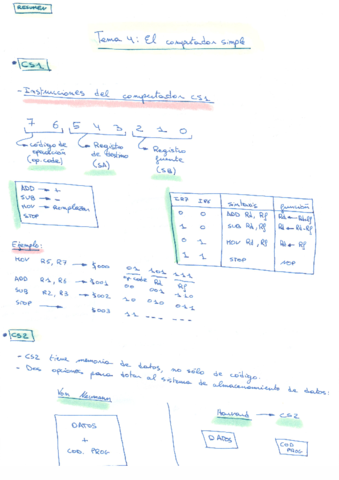 RESUMEN
Tema 4: El computador simple
CS1
- Instrucciones del computador CS1
7 6 5 4 3 2 1 0
Código de operación (op. code)
Registro de destino (SA)
Registro fuente (SB)
ADD → +
SUB → -
MOV → Remplazar
STOP
IR7 IR6 sintaxis función
0 0 ADD Rd, Rf
1 0 SUB Rd, Rf
0 1 MOV Rd, Rf Rd ← Rf
1 1 STOP NOP
Ejemplo:
MOV R5, R7 → $000 01 101 111
op.code Rd Rf
ADD R1, R3 → $001 00 001
SUB R2, R3 → $002 10 010 011
STOP → $003 11 --- ---
CS2
- CS2 tiene memoria de datos, no sólo de código.
- Dos opciones para dotar al sistema de almacenamiento de datos:
Von Neumann
DATOS
+
COD. PROG
Harvard → CS2
DATOS
COD PROG